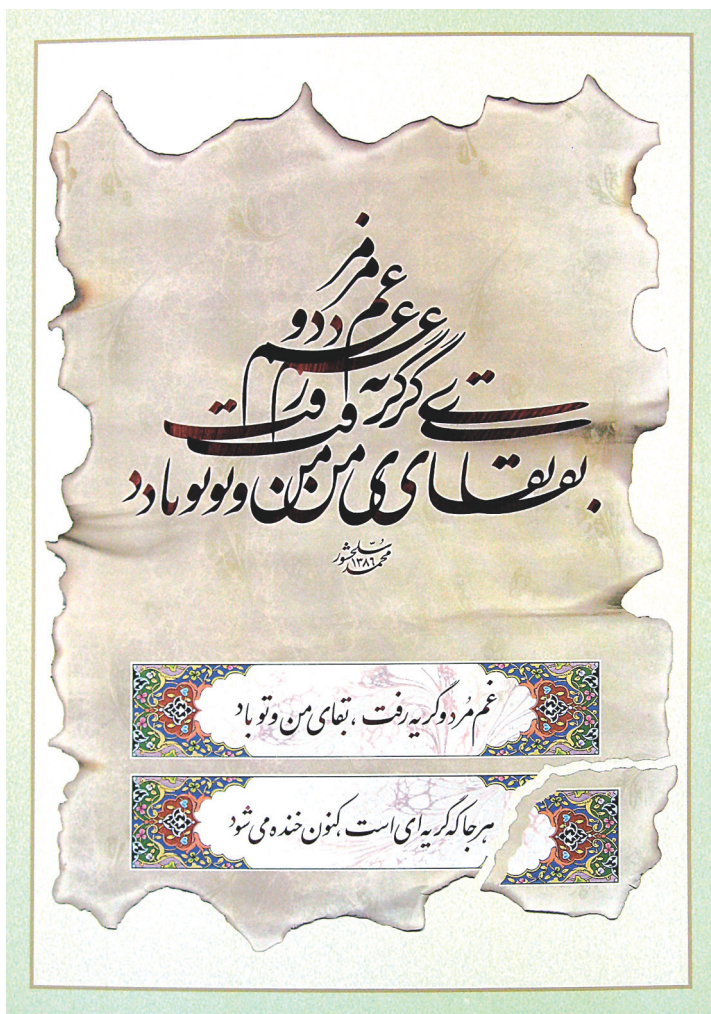 غم مرد و
گریه رفت
بقای من و تو باد
محمد سلحشور
۱۳۸۶
غم مُرد و گریه رفت، بقای من و تو باد
هر جا که گریه ای است، کنون خنده می شود